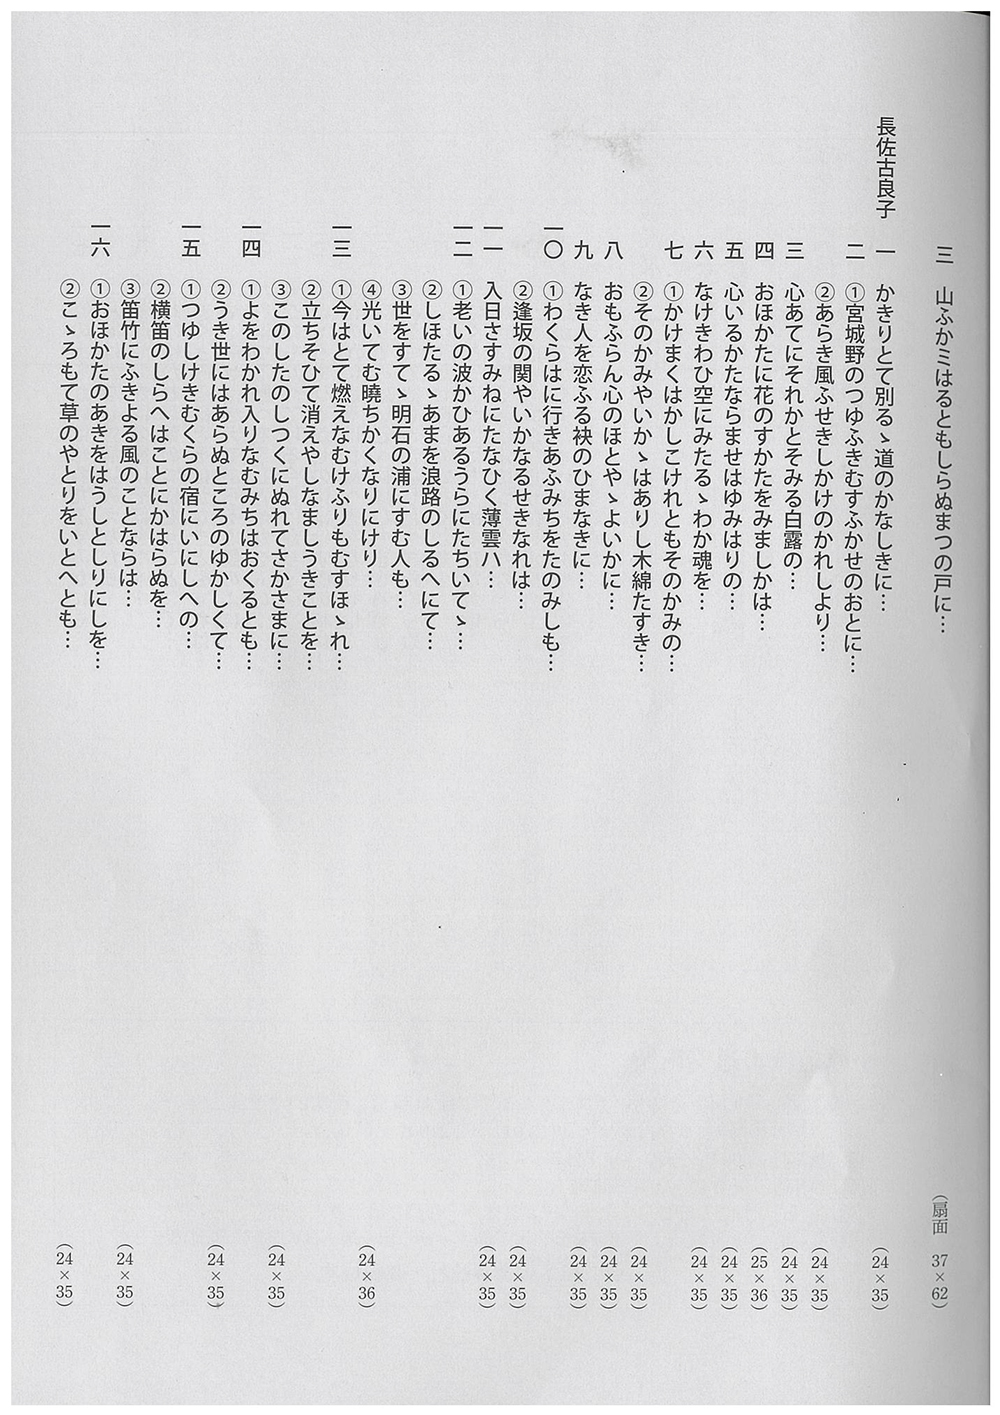 三　山ふかミはるともしらぬまつの戸に…　（扇面　37×62）
長佐古良子　一　かきりとて別るゝ道のかなしきに…　（24×35）
二　①宮城野のつゆふきむすふかせのおとに…
②あらき風ふせきしかけのかれしより…　（24×35）
三　心あてにそれかとそみる白露の…　（24×35）
四　おほかたに花のすかたをみましかは…　（25×36）
五　心いるかたならませはゆみはりの…　（24×35）
六　なけきわひ空にみたるゝわか魂を…　（24×35）
七　①かけまくはかしこけれともそのかみの…
②そのかみやいかゝはありし木綿たすき…　（24×35）
八　おもふらん心のほとやゝよいかに…　（24×35）
九　なき人を恋ふる袂のひまなきに…　（24×35）
一〇　①わくらはに行きあふみちをたのみしも…
②逢坂の関やいかなるせきなれは…　（24×35）
一一　入日さすみねにたなひく薄雲ハ…　（24×35）
一二　①老いの波かひあるうらにたちいてゝ…
②しほたるゝあまを浪路のしるへにて…
③世をすてゝ明石の浦にすむ人も…
④光いてむ曉ちかくなりにけり…　（24×36）
一三　①今はとて燃えなむけふりもむすほゝれ…
②立ちそひて消えやしなましうきことを…
③このしたのしつくにぬれてさかさまに…　（24×35）
一四　①よをわかれ入りなむみちはおくるとも…
②うき世にはあらぬところのゆかしくて…　（24×35）
一五　①つゆしけきむくらの宿にいにしへの…
②横笛のしらへはことにかはらぬを…
③笛竹にふきよる風のことならは…　（24×35）
一六　①おほかたのあきをはうしとしりにしを…
②こゝろもて草のやとりをいとへとも…　（24×35）